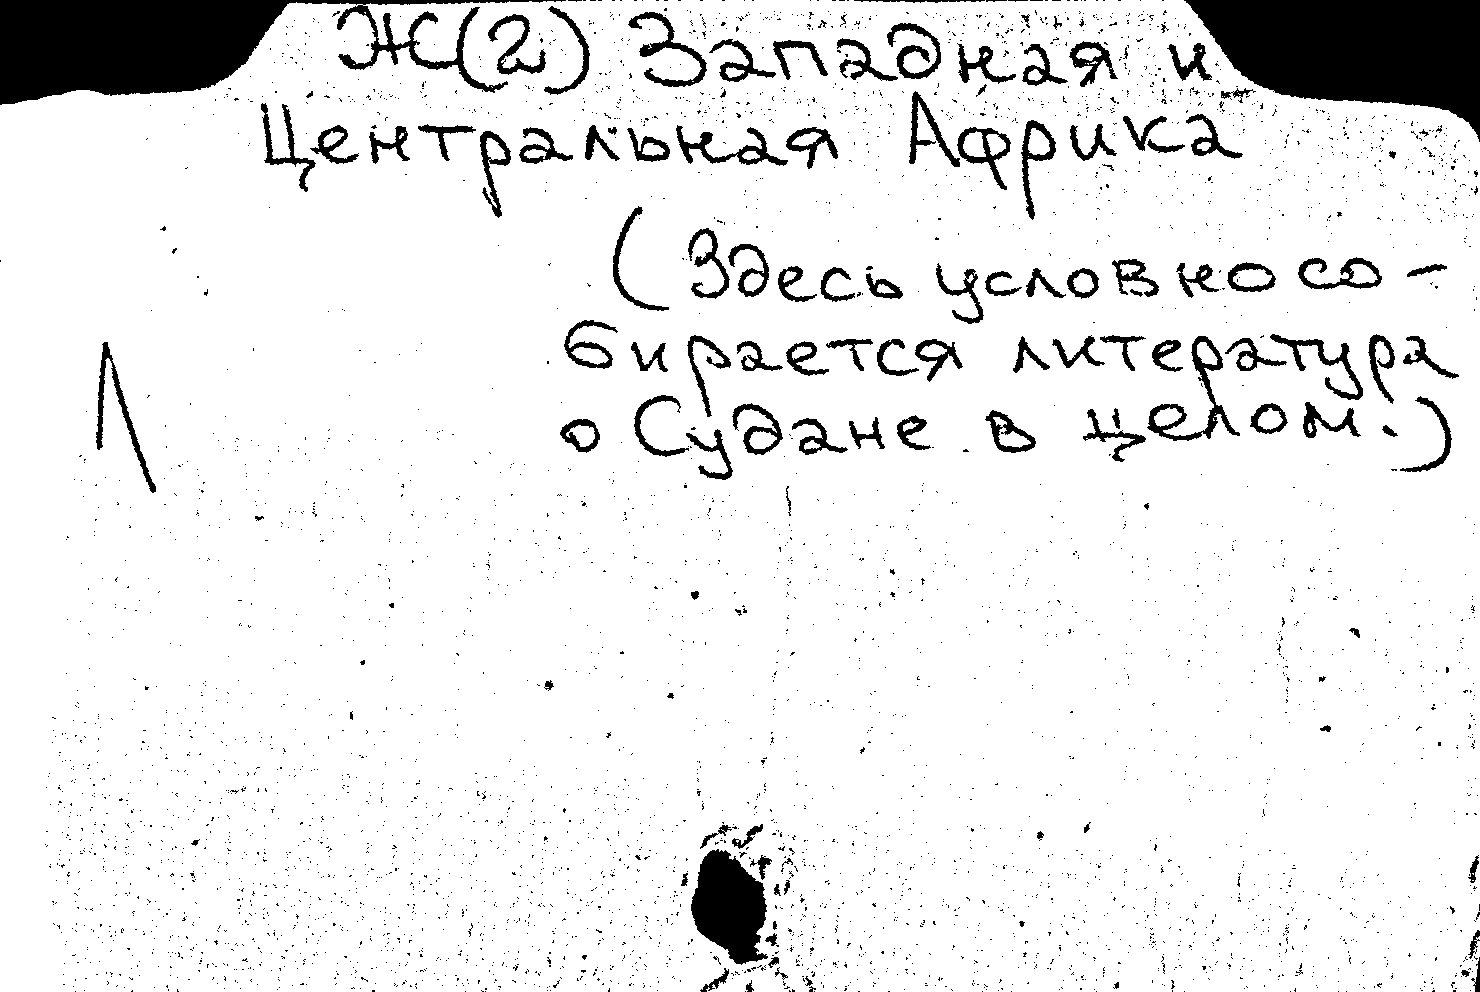 Ж(2) Западная и
Центральная Африка
(Здесь условно со-
бирается литература
о Судане в целом.)